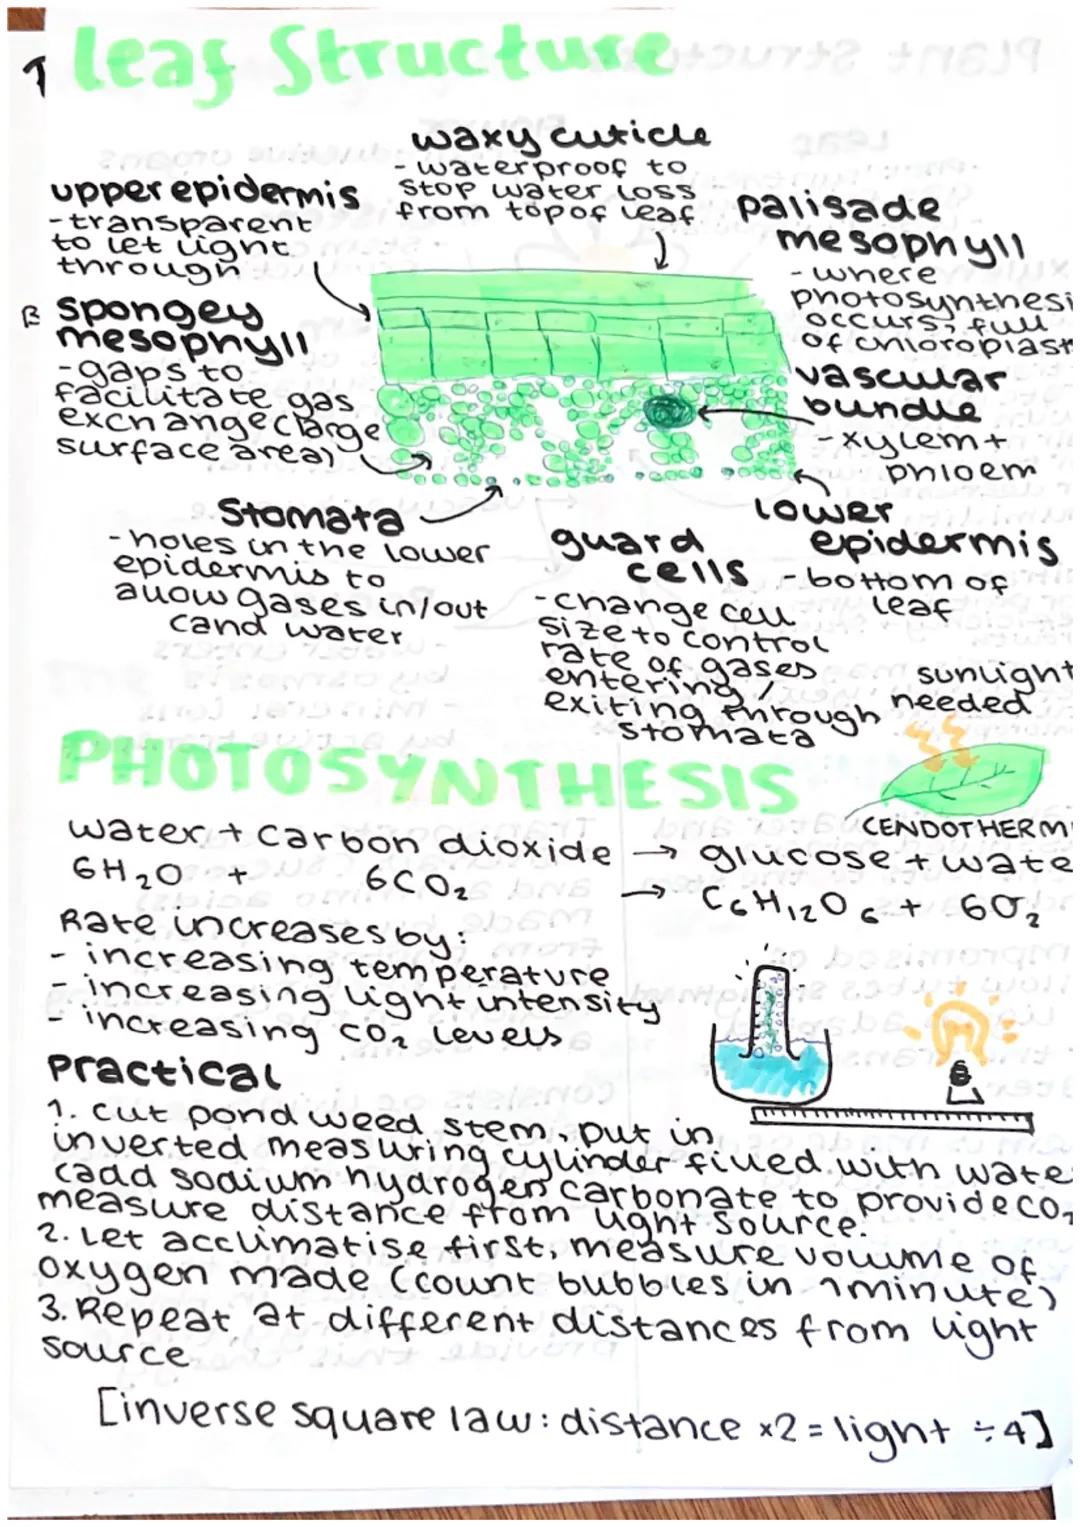 Leaf Structure
waxy cuticle
- waterproof to
stop water loss
from top of leaf
upper epidermis
- transparent
to let light
through
palisade
mesophyll
- where
photosynthesi
occurs, full
of chloroplast
spongey
mesophyll
- gaps to
facilitate gas
exchange (large
surface area)
vascular
bundle
- xylem +
phloem
Stomata
- holes in the lower
epidermis to
allow gases in/out
(and water
guard
cells
- change cell
size to control
rate of gases
entering /
exiting through
stomata
lower
epidermis
- bottom of
leaf
sunlight
needed
PHOTOSYNTHESIS
(ENDOTHERMI
water + carbon dioxide → glucose + wate
6H₂O + 6CO₂ → C₆H₁₂O₆ + 6O₂
Rate increases by:
- increasing temperature
- increasing light intensity
- increasing CO₂ levels
Practical
1. cut pond weed stem, put in
inverted measuring cylinder filled with wate
(add sodium hydrogen carbonate to provide CO₂
measure distance from light source.
2. Let acclimatise first, measure volume of
oxygen made (count bubbles in 1 minute)
3. Repeat at different distances from light
source
[inverse square law: distance ×2 = light ÷4]